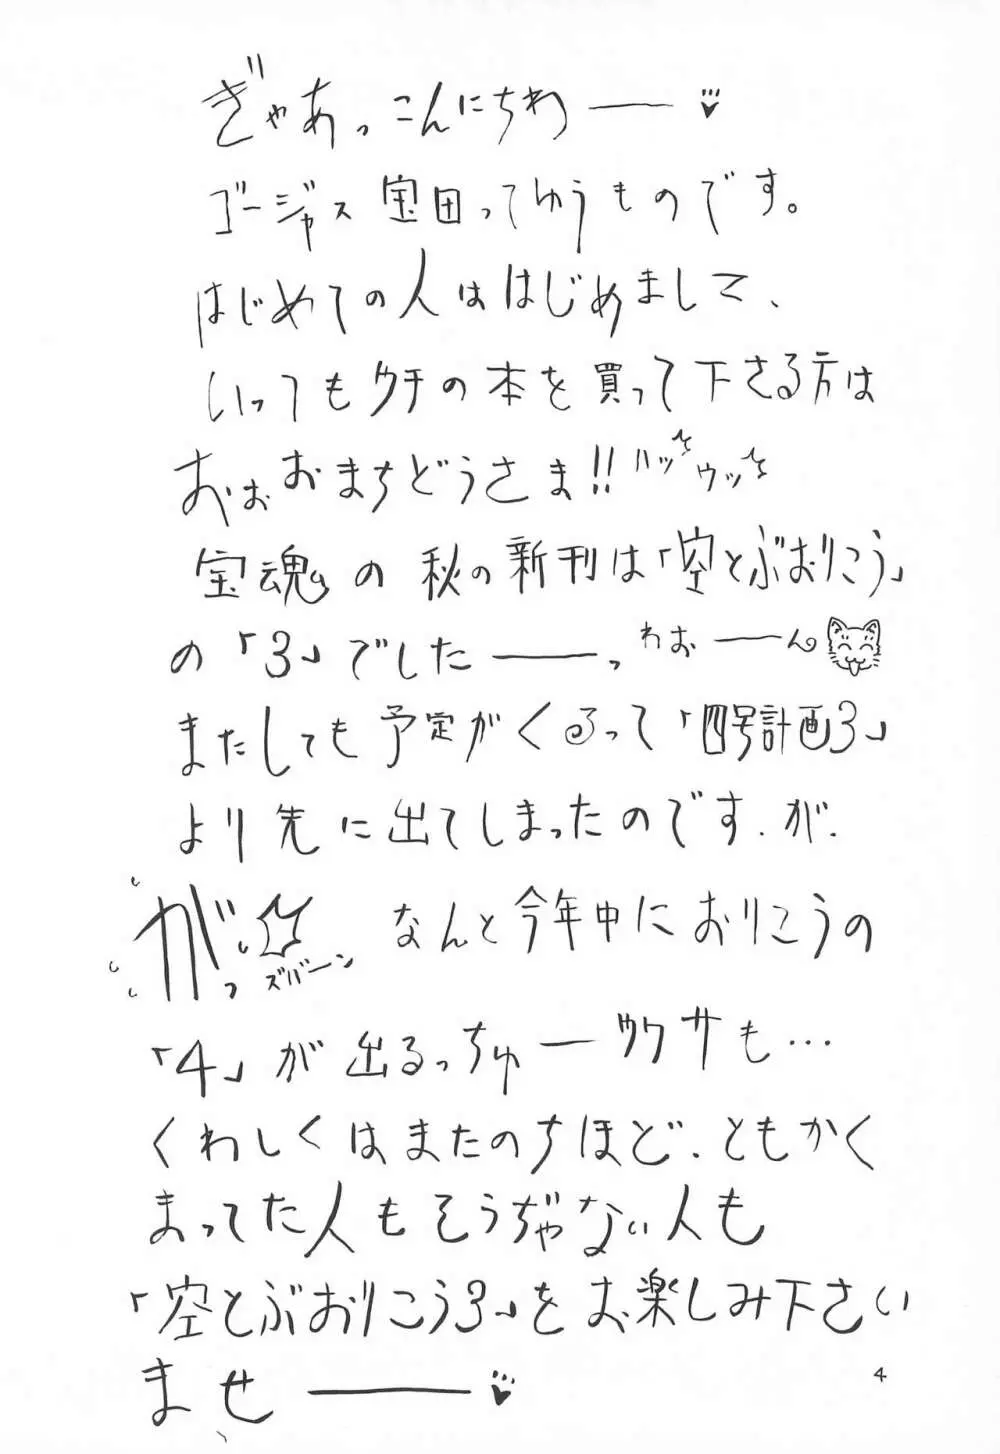 ぎゃあっこんにちわ――♥
ゴージャス宝田ってゆうものです。
はじめての人ははじめまして、
いっつもウチの本を買って下さる方は
おぉおまちどうさま!!ハッウッ
宝魂の秋の新刊は「空とぶおりこう」
の「3」でした――っわおーん
またしても予定がくるって「四号計画3」
より先に出てしまったのです.が.
がっ
ズバーン
なんと今年中におりこうの
「4」が出るっちゅーウワサも…
くわしくはまたのちほど、ともかく
まってた人もそうぢゃない人も
「空とぶおりこう3」をお楽しみ下さい
ませ――♥
4